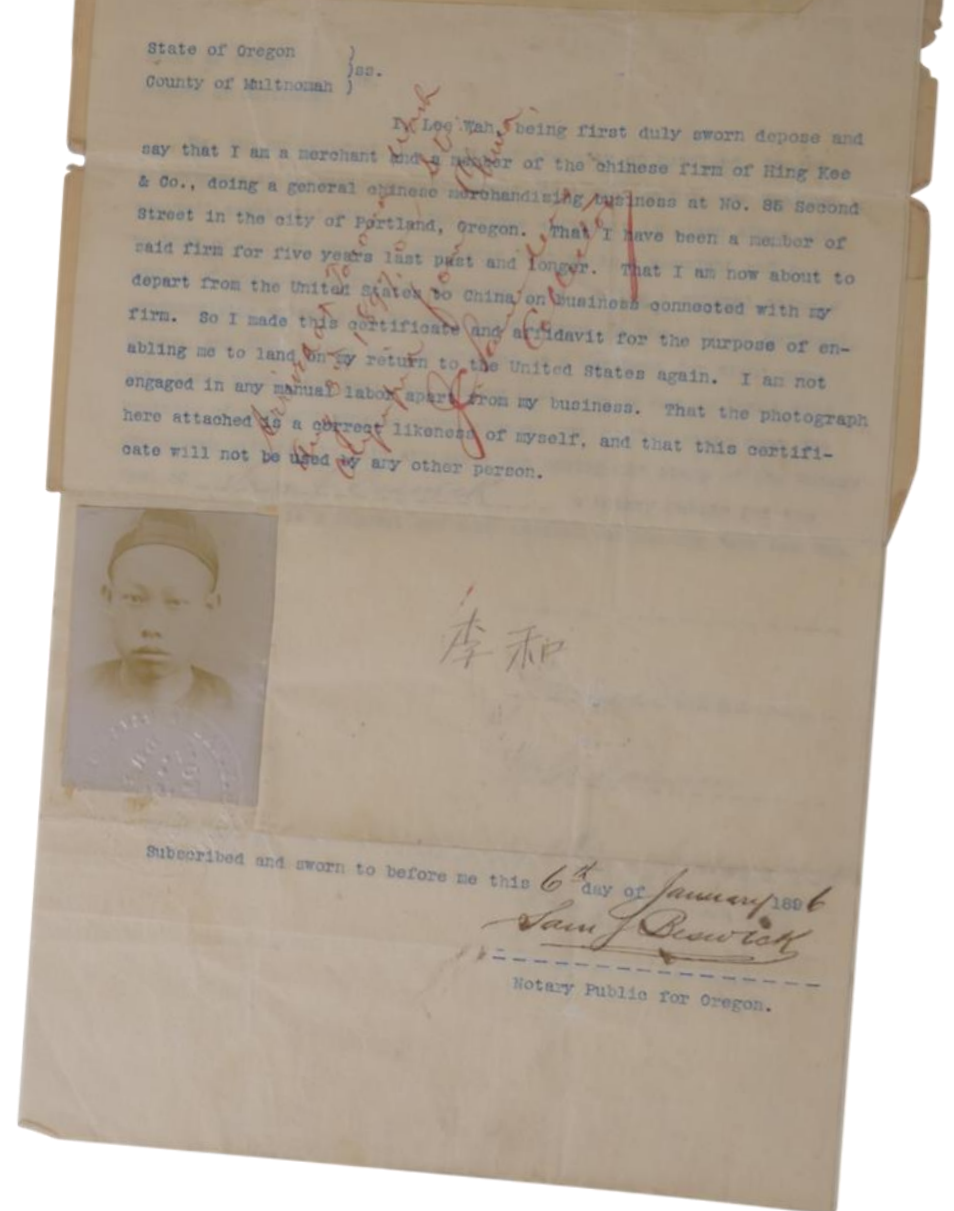 State of Oregon )
)ss.
County of Multnomah )
I, Lee Wah, being first duly sworn depose and
say that I am a merchant and a member of the chinese firm of Hing Kee
& Co., doing a general chinese merchandising business at No. 85 Second
Street in the city of Portland, Oregon. That I have been a member of
said firm for five years last past and longer. That I am now about to
depart from the United States to China on business connected with my
firm. So I made this certificate and affidavit for the purpose of en-
abling me to land on my return to the United States again. I am not
engaged in any manual labor apart from my business. That the photograph
here attached is a correct likeness of myself, and that this certifi-
cate will not be used by any other person.
李和
Subscribed and sworn to before me this 6th day of January 1896
Sam J Beswick
Notary Public for Oregon.